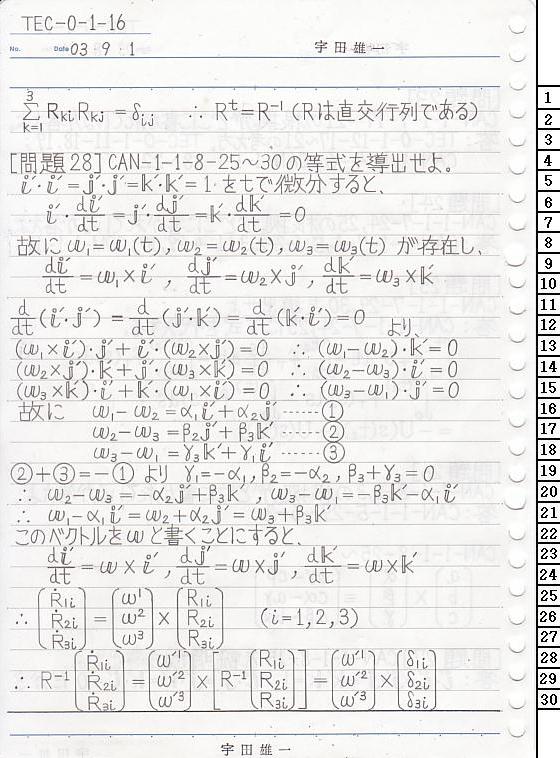 TEC-0-1-16
No. Date 03・9・1 宇田雄一
3 Σ k=1 Rki Rkj = δij ∴ Rᵗ=R⁻¹ (Rは直交行列である)
[問題28] CAN-1-1-8-25〜30の等式を導出せよ。
i′・i′=j′・j′=k′・k′=1 をtで微分すると、
i′・di′/dt = j′・dj′/dt = k′・dk′/dt = 0
故に ω1=ω1(t), ω2=ω2(t), ω3=ω3(t) が存在し、
di′/dt = ω1×i′, dj′/dt = ω2×j′, dk′/dt = ω3×k′
d/dt(i′・j′) = d/dt(j′・k′) = d/dt(k′・i′) = 0 より、
(ω1×i′)・j′+i′・(ω2×j′)=0 ∴ (ω1-ω2)・k′=0
(ω2×j′)・k′+j′・(ω3×k′)=0 ∴ (ω2-ω3)・i′=0
(ω3×k′)・i′+k′・(ω1×i′)=0 ∴ (ω3-ω1)・j′=0
故に ω1-ω2=α1i′+α2j′ ……①
ω2-ω3=β2j′+β3k′ ……②
ω3-ω1=γ3k′+γ1i′ ……③
②+③=-① より γ1=-α1, β2=-α2, β3+γ3=0
∴ ω2-ω3=-α2j′+β3k′, ω3-ω1=-β3k′-α1i′
∴ ω1-α1i′=ω2+α2j′=ω3+β3k′
このベクトルをωと書くことにすると、
di′/dt = ω×i′, dj′/dt = ω×j′, dk′/dt = ω×k′
∴ (Ṙ1i Ṙ2i Ṙ3i) = (ω¹ ω² ω³) × (R1i R2i R3i) (i=1,2,3)
∴ R⁻¹(Ṙ1i Ṙ2i Ṙ3i) = (ω′¹ ω′² ω′³) × [R⁻¹(R1i R2i R3i)] = (ω′¹ ω′² ω′³) × (δ1i δ2i δ3i)
宇田雄一
1
2
3
4
5
6
7
8
9
10
11
12
13
14
15
16
17
18
19
20
21
22
23
24
25
26
27
28
29
30